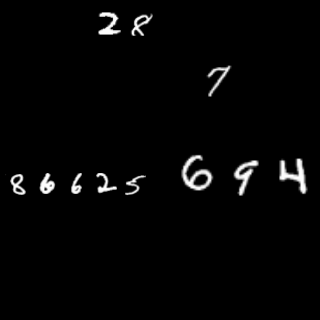 28
7
86625 694